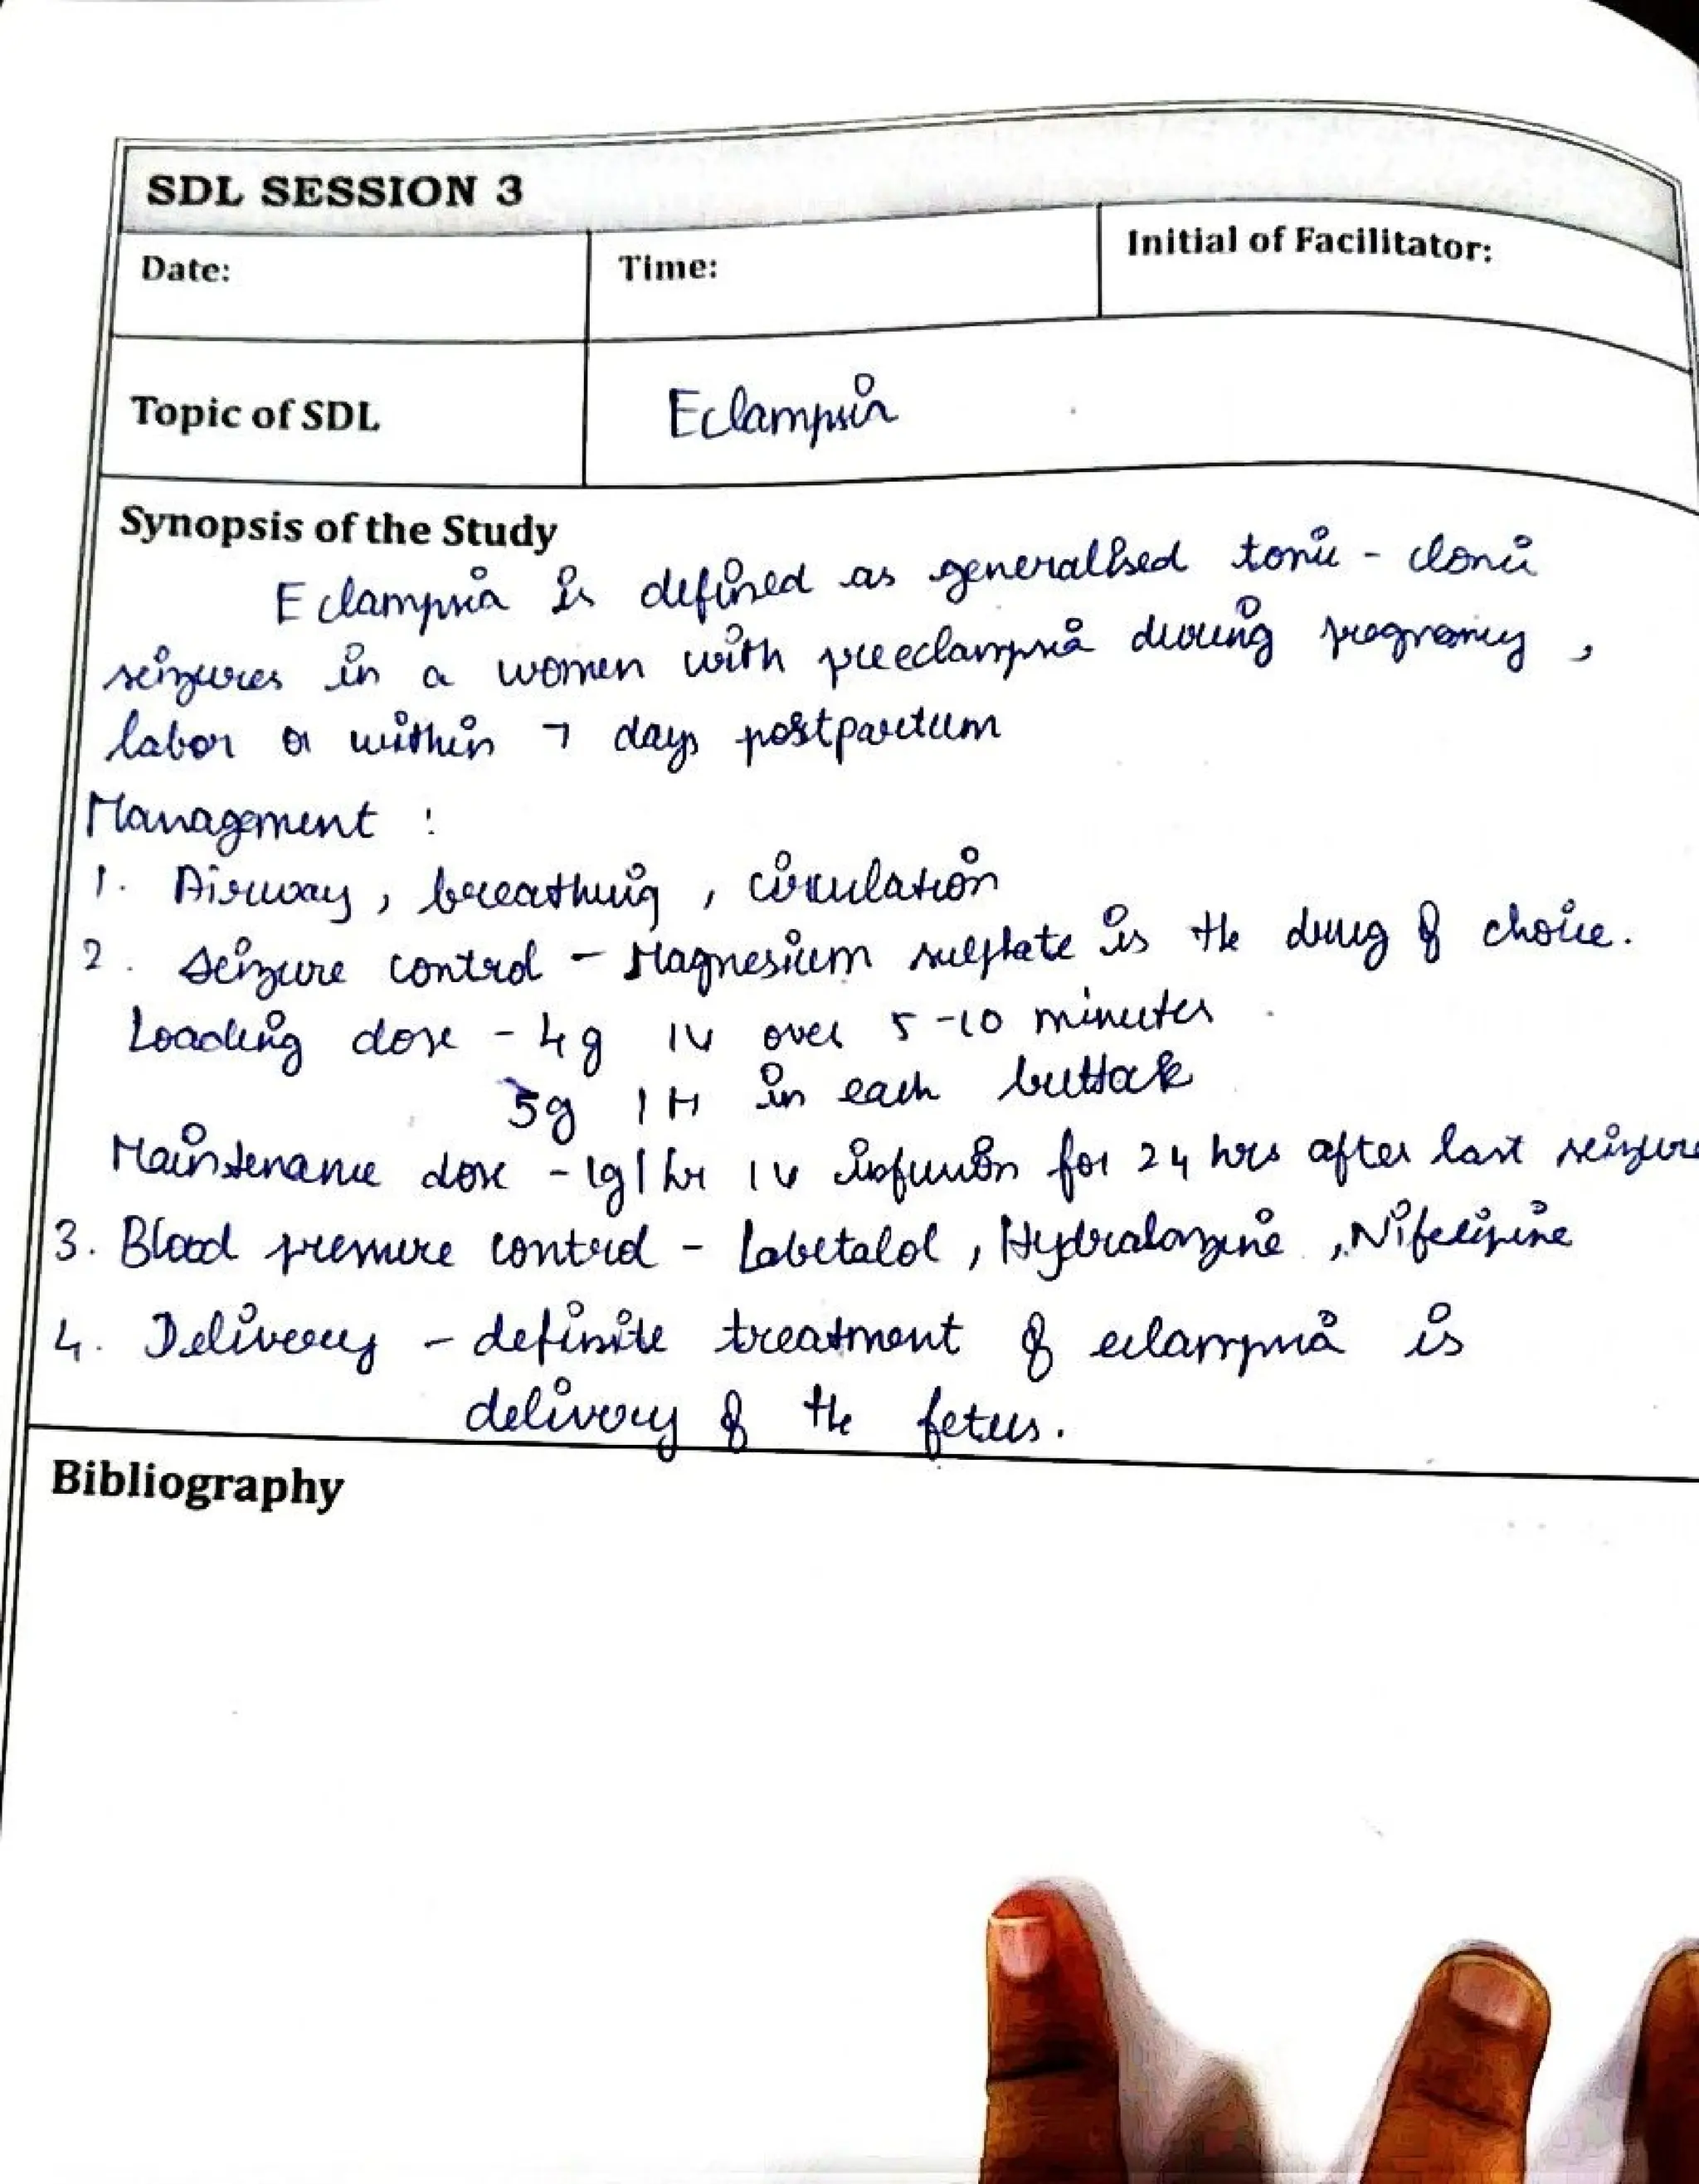 SDL SESSION 3
Date:
Time:
Initial of Facilitator:
Topic of SDL
Eclampsia
Synopsis of the Study
Eclampsia is defined as generalised tonic - clonic
seizures in a women with preeclampsia during pregnancy,
labor or within 7 days postpartum
Management :
1. Airway, breathing, circulation
2. Seizure control - Magnesium sulphate is the drug of choice.
Loading dose - 4g IV over 5-10 minutes.
5g IM in each buttock
Maintenance dose - 1g/hr IV infusion for 24 hrs after last seizure
3. Blood pressure control - Labetalol, Hydralazine, Nifedipine
4. Delivery - definite treatment of eclampsia is
delivery of the fetus.
Bibliography